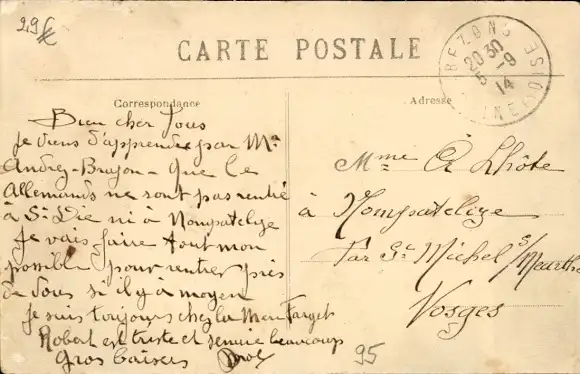 29
CARTE POSTALE
BEZONS
SEINE OISE
20 30
5 - 9
14
Correspondance
Adresse
Bien cher Tous
Je viens d'apprendre par Mr
Andrey-Brajon - que les
Allemands ne sont pas rentré
à St Dié ni à Nompatelize
Je vais faire tout mon
possible pour rentrer près
de Vous si il y a moyen
Je suis toujours chez la Mère Farget
Robert est triste et s'ennuie beaucoup
Gros baisers
Mme A Lhôte
à Nompatelize
Par St Michel s/Meurthe
Vosges
95